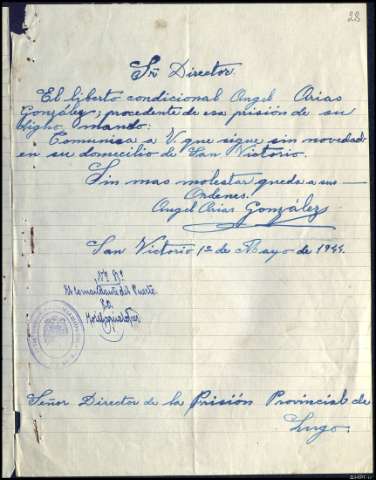 28
Sr Director.
El liberto condicional Angel Arias
González, procedente de esa prisión de su
digno mando:
Comunica a V. que sigue sin novedad
en su domicilio de San Victorio.
Sin mas molestar queda a sus
Ordenes.
Angel Arias González
San Victorio 1º de Mayo de 1944.
Vº Bº
El Comandante del Puesto
Señor Director de la Prisión Provincial de
Lugo.